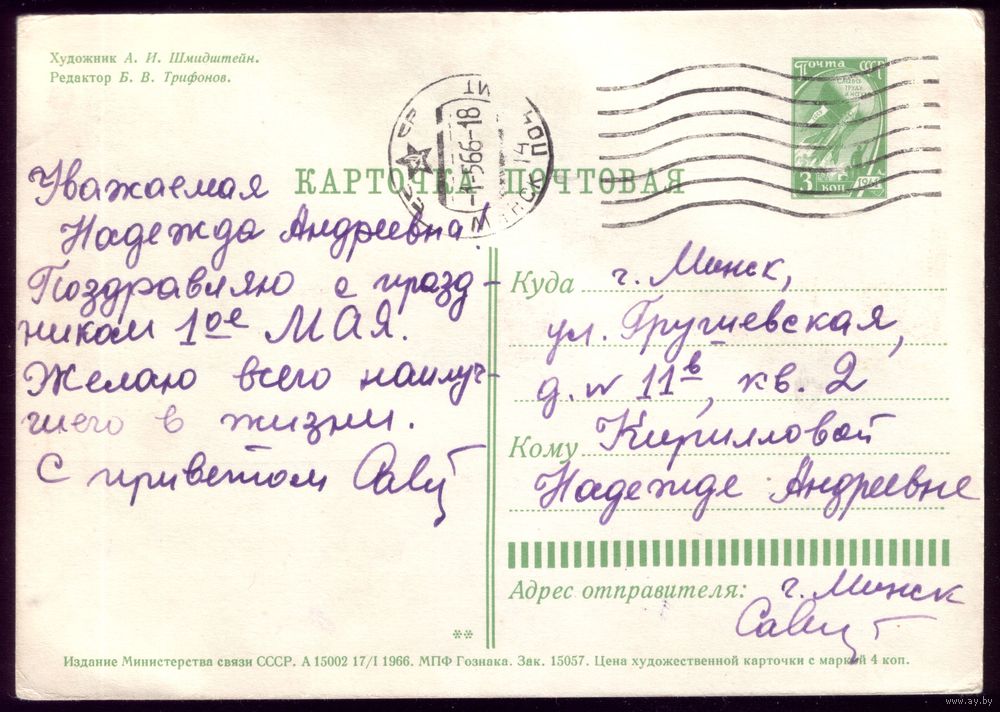 Художник А. И. Шмидштейн.
Редактор Б. В. Трифонов.
Почта СССР
3 коп
1961
СССР
-1-566-18
МИНСК 14 ПОЧ
КАРТОЧКА ПОЧТОВАЯ
Уважаемая
Надежда Андреевна!
Поздравляю с празд-
ником 1ое МАЯ.
Желаю всего наилуч-
шего в жизни.
С приветом Савц
Куда г. Минск,
ул. Грушевская,
д. № 11в, кв. 2
Кому Кирилловой
Надежде Андреевне
Адрес отправителя: г. Минск
**
Издание Министерства связи СССР. А 15002 17/I 1966. МПФ Гознака. Зак. 15057. Цена художественной карточки с маркой 4 коп.
www.ay.by